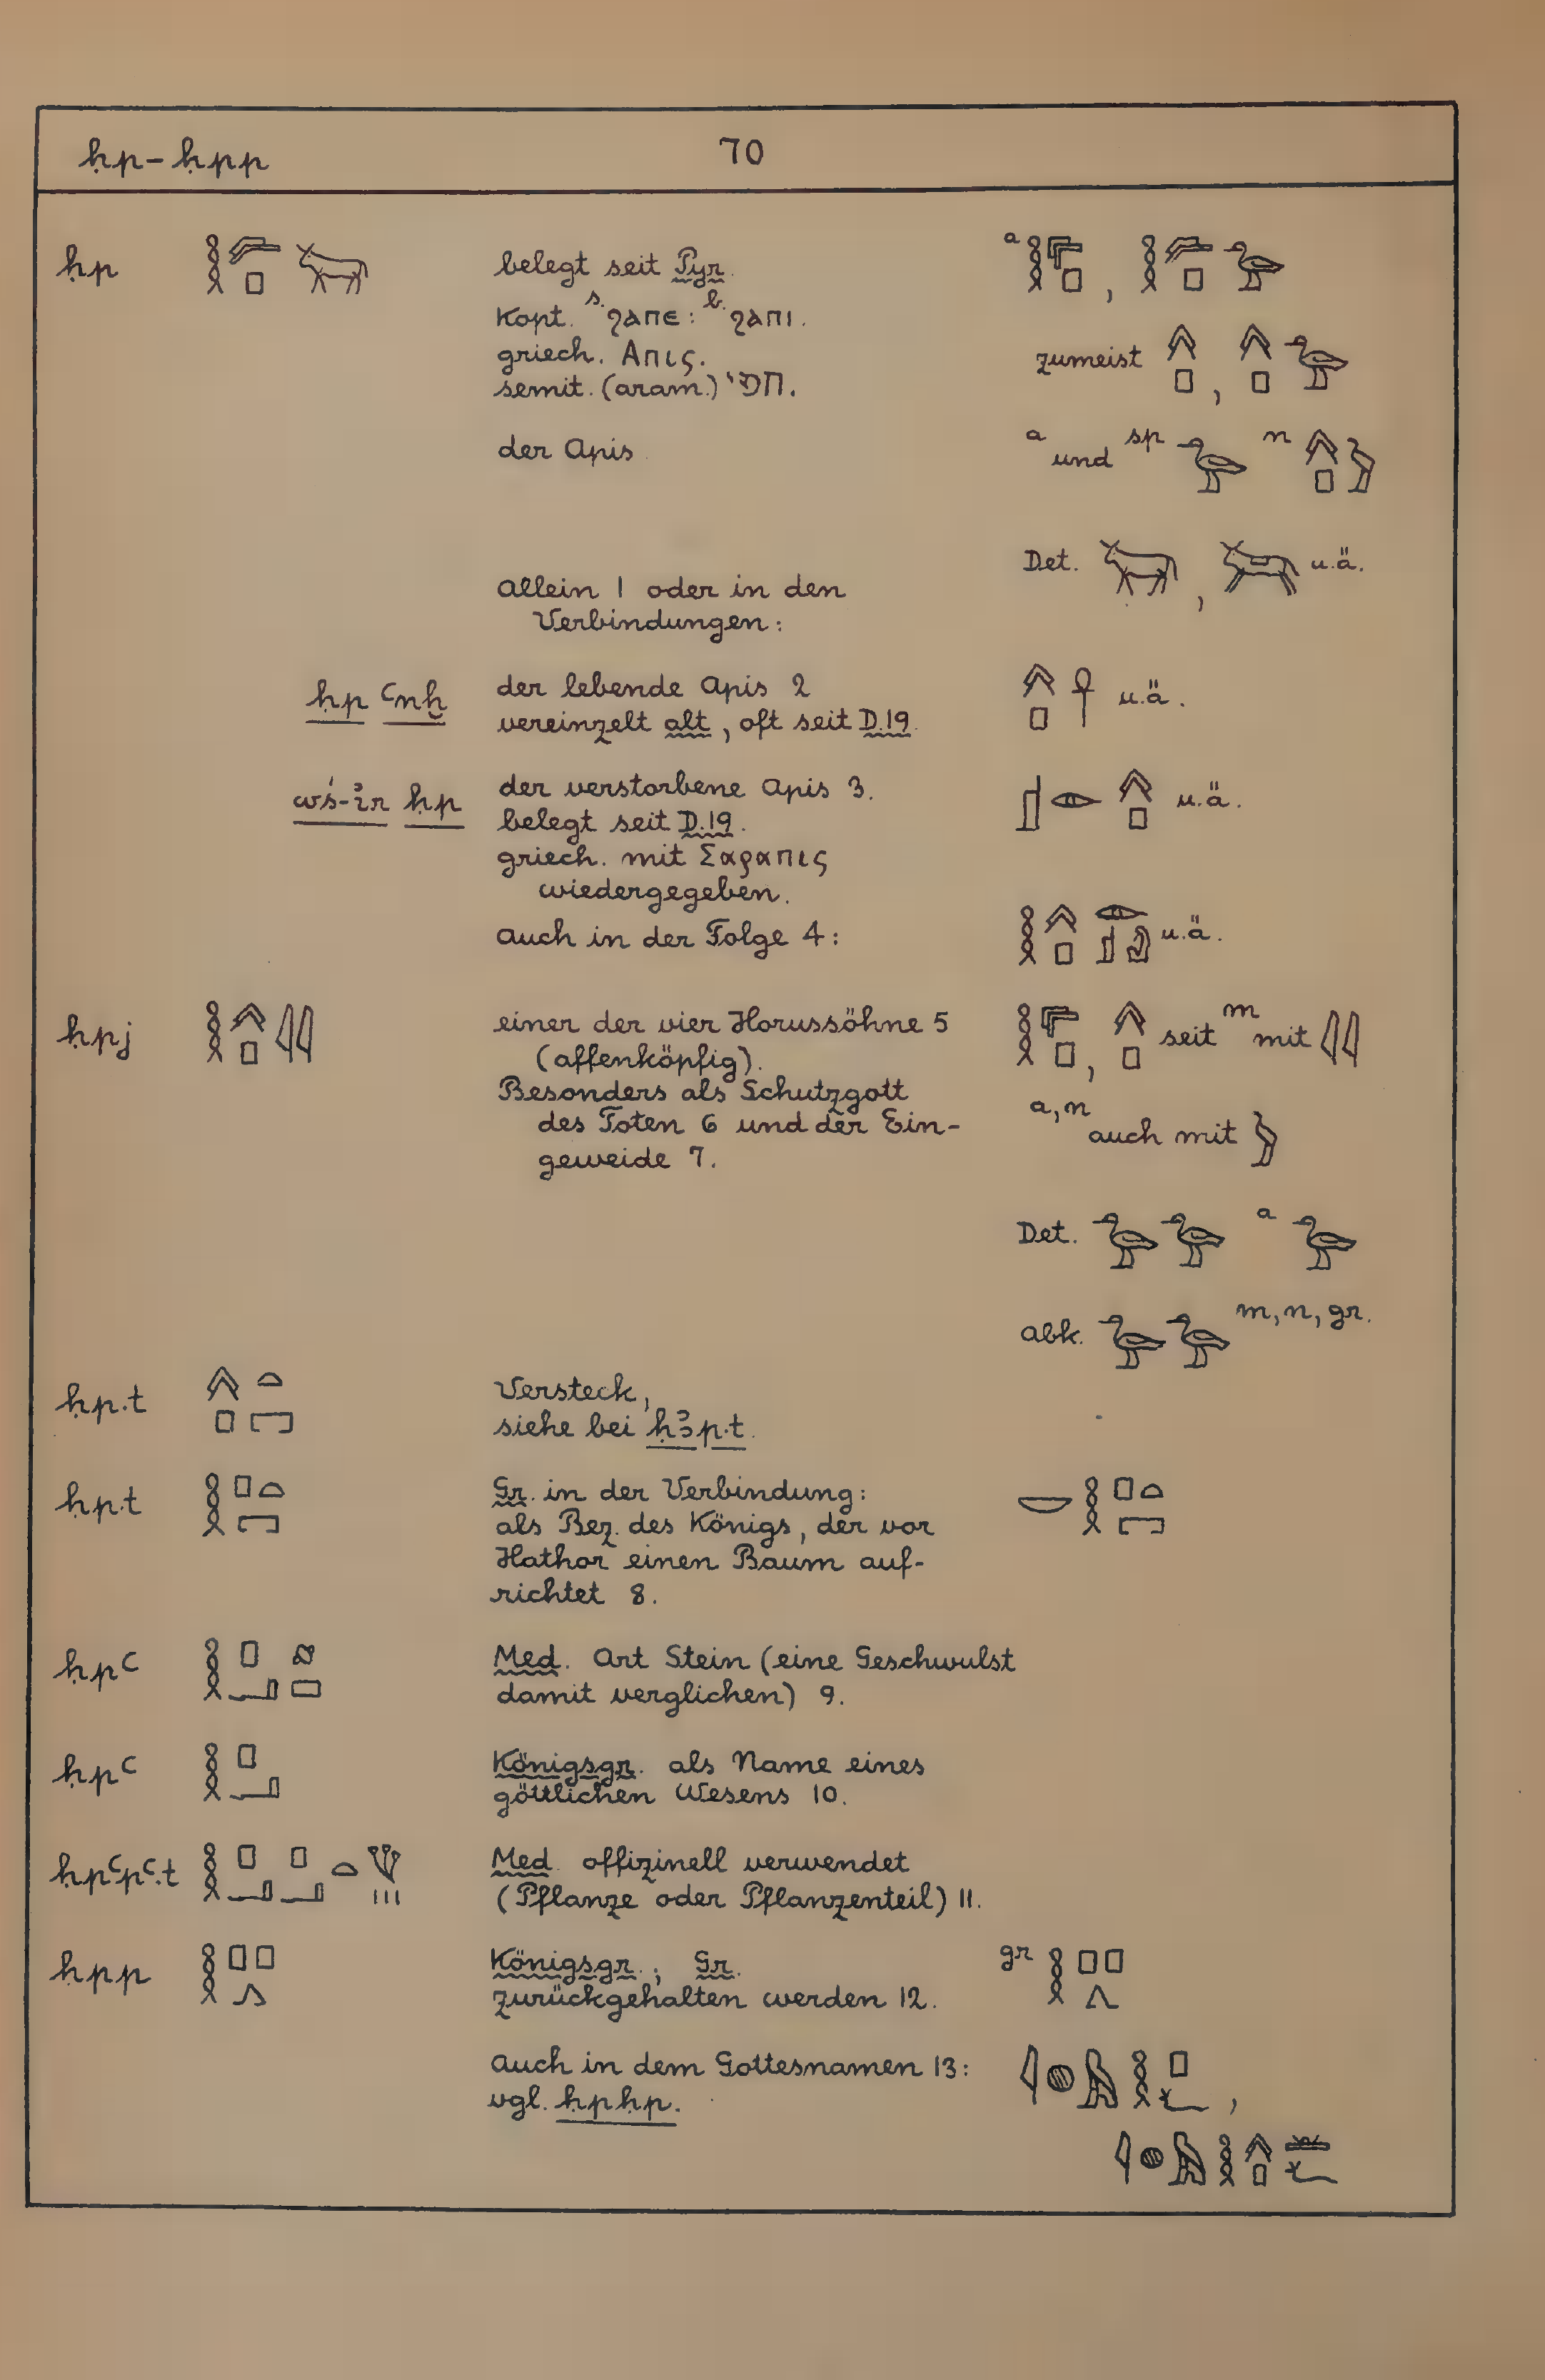 ḥp – ḥpp 70
ḥp belegt seit Pyr. a
Kopt. s. ϩⲁⲡⲉ : b. ϩⲁⲡⲓ.
griech. Απις. zumeist
semit. (aram.) חפי.
der Apis a und sp n
Det. , u.ä.
allein 1 oder in den
Verbindungen:
ḥp ꜥnḫ der lebende Apis 2 u.ä.
vereinzelt alt, oft seit D.19.
wś-ỉr ḥp der verstorbene Apis 3. u.ä.
belegt seit D.19.
griech. mit Σαραπις
wiedergegeben.
auch in der Folge 4: u.ä.
ḥpj einer der vier Horussöhne 5 , seit m mit
(affenköpfig).
Besonders als Schutzgott
des Toten 6 und der Ein- a, n auch mit
geweide 7.
Det. a
abk. m, n, gr.
ḥp.t Versteck,
siehe bei ḥꜣp.t.
ḥp.t Gr. in der Verbindung:
als Bez. des Königs, der vor
Hathor einen Baum auf-
richtet 8.
ḥpꜥ Med. Art Stein (eine Geschwulst
damit verglichen) 9.
ḥpꜥ Königsgr. als Name eines
göttlichen Wesens 10.
ḥpꜥpꜥ.t Med. offizinell verwendet
(Pflanze oder Pflanzenteil) 11.
ḥpp Königsgr.; Gr. gr
zurückgehalten werden 12.
auch in dem Gottesnamen 13:
vgl. ḥpḥp.